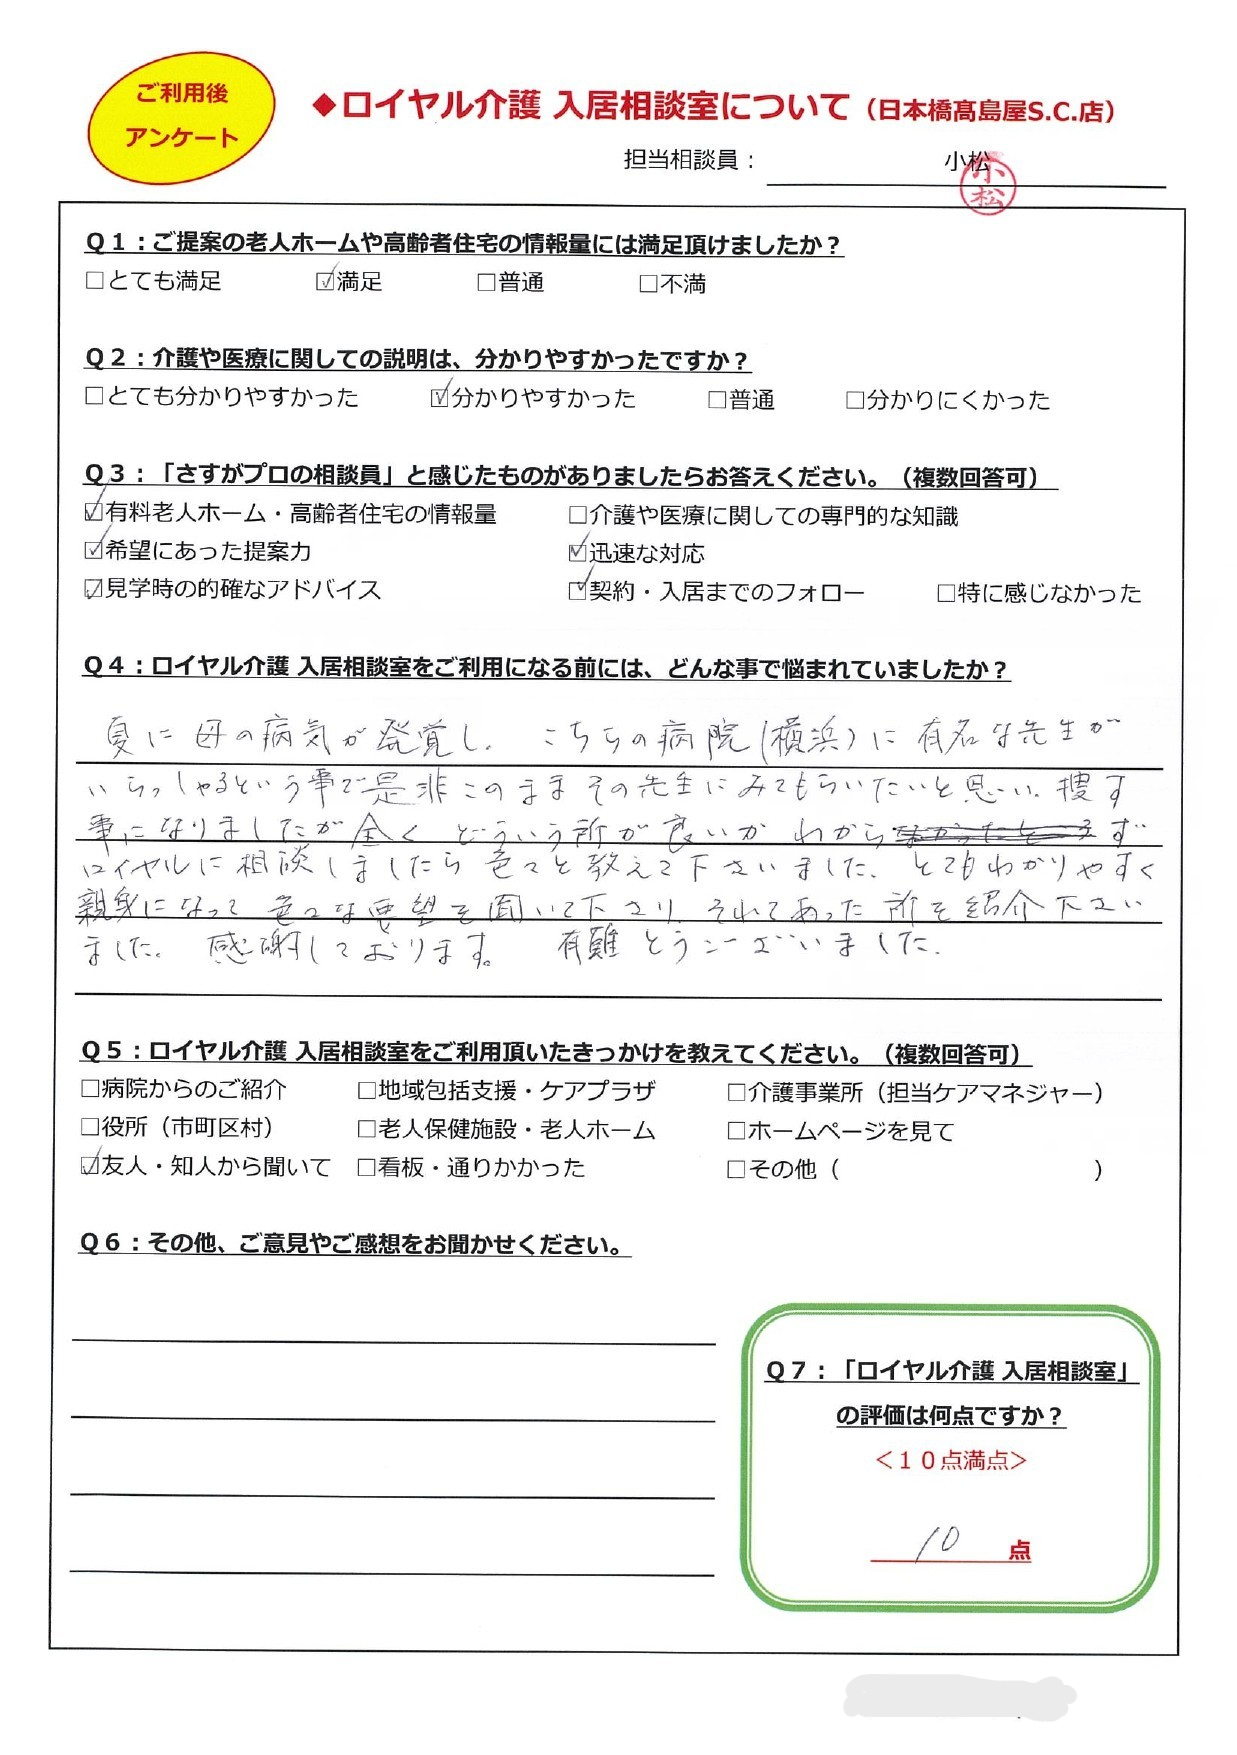 ご利用後
アンケート
◆ロイヤル介護 入居相談室について（日本橋髙島屋S.C.店）
担当相談員： 小松
小松
Q1：ご提案の老人ホームや高齢者住宅の情報量には満足頂けましたか？
□とても満足 ☑満足 □普通 □不満
Q2：介護や医療に関しての説明は、分かりやすかったですか？
□とても分かりやすかった ☑分かりやすかった □普通 □分かりにくかった
Q3：「さすがプロの相談員」と感じたものがありましたらお答えください。（複数回答可）
☑有料老人ホーム・高齢者住宅の情報量 □介護や医療に関しての専門的な知識
☑希望にあった提案力 ☑迅速な対応
☑見学時の的確なアドバイス ☑契約・入居までのフォロー □特に感じなかった
Q4：ロイヤル介護 入居相談室をご利用になる前には、どんな事で悩まれていましたか？
夏に母の病気が発覚し、こちらの病院(横浜)に有名な先生が
いらっしゃるという事で是非このままその先生にみてもらいたいと思い、捜す
事になりましたが全くどういう所が良いかわからず
ロイヤルに相談しましたら色々と教えて下さいました、とてもわかりやすく
親身になって色々な要望を聞いて下さり、それてあった所を紹介下さい
ました。感謝しております。有難とうございました。
Q5：ロイヤル介護 入居相談室をご利用頂いたきっかけを教えてください。（複数回答可）
□病院からのご紹介 □地域包括支援・ケアプラザ □介護事業所（担当ケアマネジャー）
□役所（市町区村） □老人保健施設・老人ホーム □ホームページを見て
☑友人・知人から聞いて □看板・通りかかった □その他（ ）
Q6：その他、ご意見やご感想をお聞かせください。
Q7：「ロイヤル介護 入居相談室」
の評価は何点ですか？
＜10点満点＞
10 点